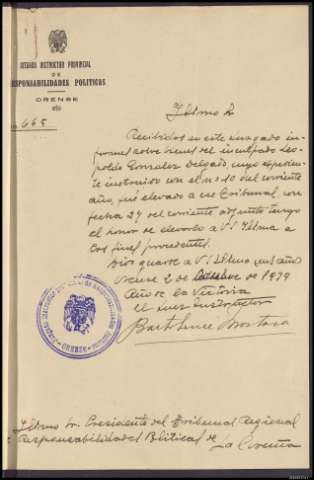 JUZGADO INSTRUCTOR PROVINCIAL
DE
RESPONSABILIDADES POLITICAS
ORENSE
668
Iltmo Sr
Recibidos en este juzgado in-
formes sobre bienes del inculpado Leo-
poldo Gonzalez Delgado, cuyo expedien-
te instruido con el nº 10 del corriente
año, fué elevado a ese Tribunal con
fecha 27 del corriente adjunto tengo
el honor de elevarlo a V. Iltma a
los fines procedentes.
Dios guarde a V. Iltma muchos años
Orense 2 de Octubre de 1939
Año de la Victoria
El Juez Instructor
Bartolomé
ORENSE
Iltmo Sr. Presidente del Tribunal Regional
Responsabilidades Politicas de La Coruña